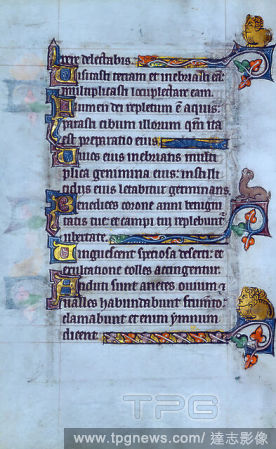 pere delectabis.
Uisitasti terram et inebriasti eā:
multiplicasti locupletare eam.
Flumen dei repletum ē aquis:
parasti cibum illorum qm̄ ita
est preparatio eius.
Riuos eius inebrians multi
plica genimina eius: in stilli
cidiis eius letabitur germinans.
Benedices corone anni benigni
tatis tue: et campi tui replebunt᷑
ubertate.
Pinguescent speciosa deserti: et
exultatione colles accingentur.
Induti sunt arietes ouium et
ualles habundabunt frumēto:
clamabunt et enim ymnum
dicent.
TPG
www.tpgnews.com/ 達志影像